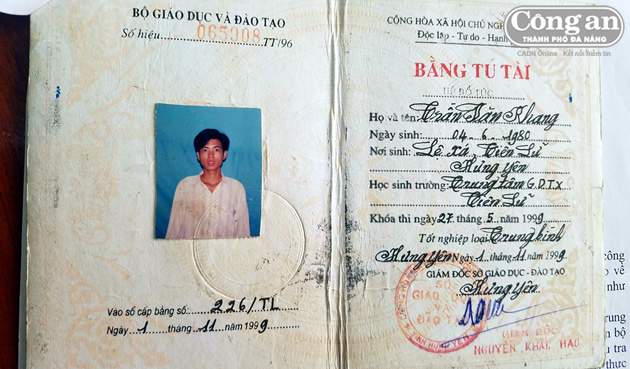 BỘ GIÁO DỤC VÀ ĐÀO TẠO
Số hiệu: 065908 TT/96
Vào sổ cấp bằng số: 226/TL
Ngày 1 tháng 11 năm 1999
CỘNG HÒA XÃ HỘI CHỦ NGH
Độc lập - Tự do - Hạnh
Công an
THÀNH PHỐ ĐÀ NẴNG
CADN Online - Kết nối niềm tin
BẰNG TÚ TÀI
Họ và tên: Trần Văn Khang
Ngày sinh: 04.6.1980
Nơi sinh: Lê Xá, Tiên Lữ
Hưng Yên
Học sinh trường: Trung tâm G.D.T.X
Tiên Lữ
Khóa thi ngày 27 tháng 5 năm 1999
Tốt nghiệp loại Trung bình
Hưng Yên Ngày 1 tháng 11 năm 1999
GIÁM ĐỐC SỞ GIÁO DỤC - ĐÀO TẠO
Hưng Yên
SỞ
GIÁO DỤC
VÀ
ĐÀO TẠO
NGUYỄN KHẮC HÀO
công
về
như
rung
bộ
tra
thực